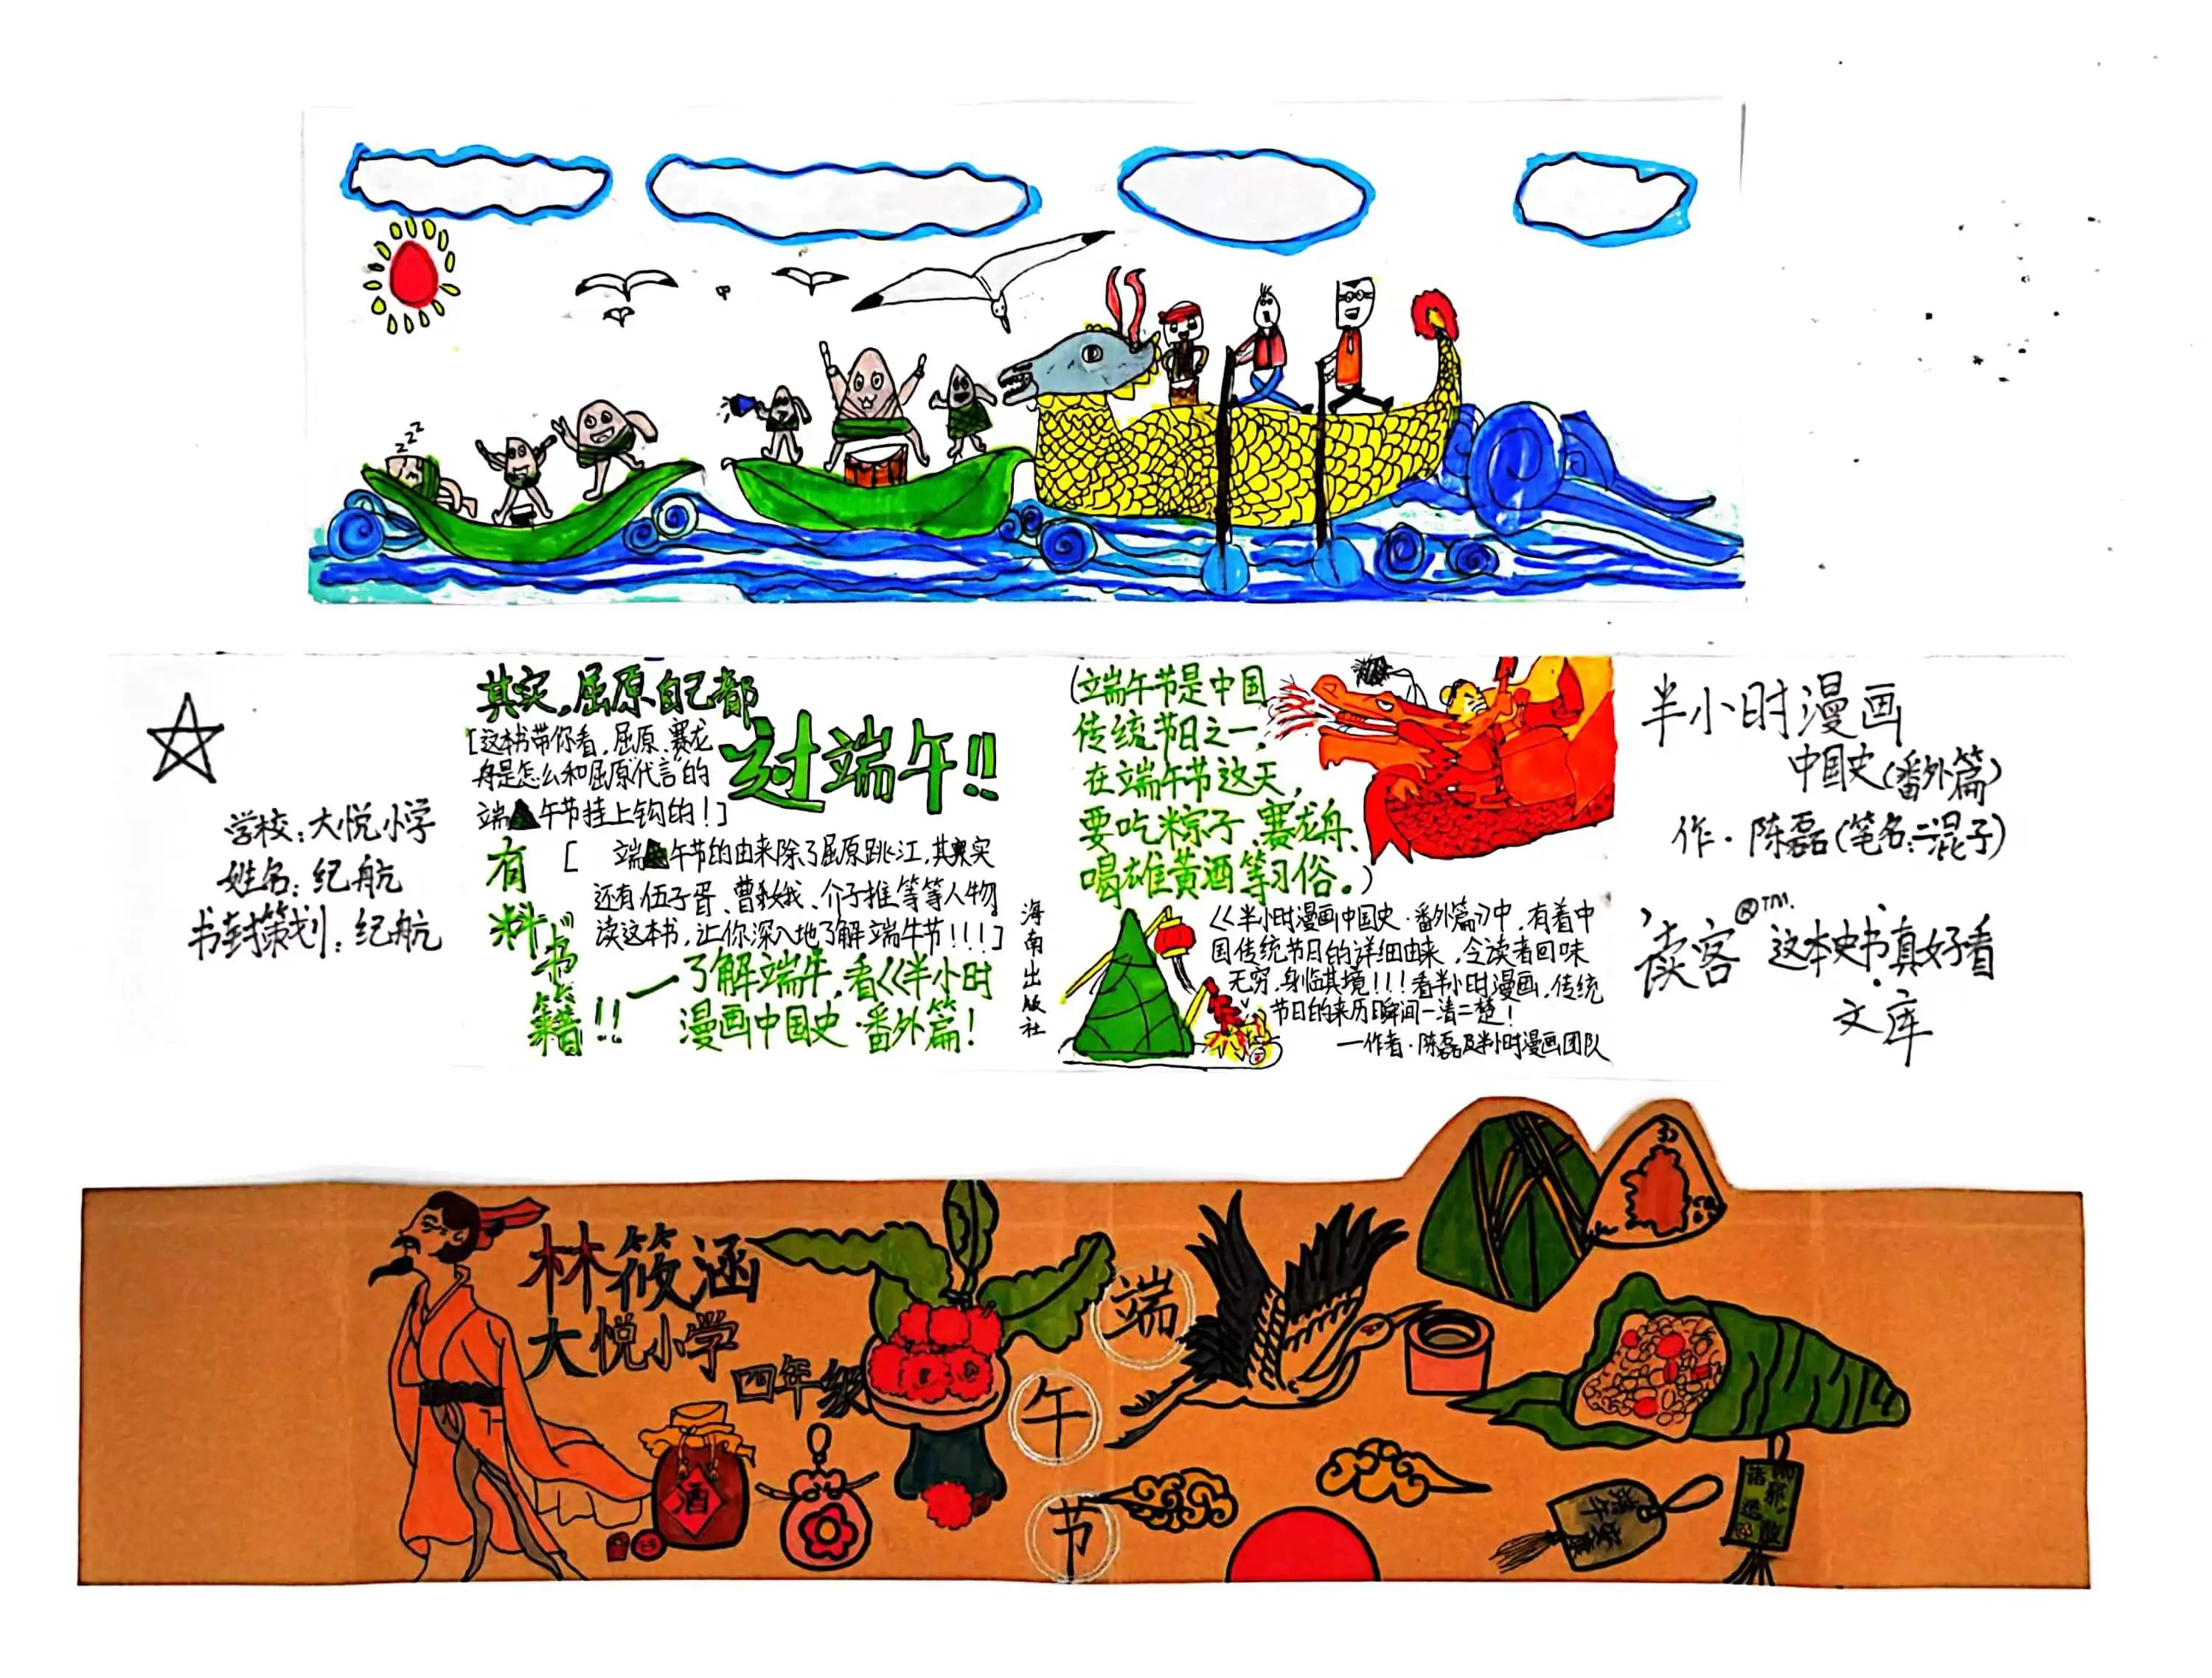 zzz
学校：大悦小学
姓名：纪航
书封策划：纪航
其实，屈原自己都
过端午!!
[这本书带你看，屈原、赛龙
舟是怎么和屈原“代言”的
端午节挂上钩的！]
[端午节的由来除了屈原跳江，其实
还有伍子胥、曹娥、介子推等等人物
读这本书，让你深入地了解端午节!!!]
有料“书籍!!
一了解端午，看《半小时
漫画中国史·番外篇！
海南出版社
(端午节是中国
传统节日之一，
在端午节这天，
要吃粽子、赛龙舟、
喝雄黄酒等习俗。)
《半小时漫画中国史·番外篇》中，有着中
国传统节日的详细由来，令读者回味
无穷，身临其境!!!看半小时漫画，传统
节日的来历瞬间一清二楚！
—作者·陈磊及半小时漫画团队
半小时漫画
中国史(番外篇)
作·陈磊(笔名：二混子)
读客®TM.这本史书真好看
文库
林筱涵
大悦小学
四年级
酒
端
午
节
端午安康
诸邪退散